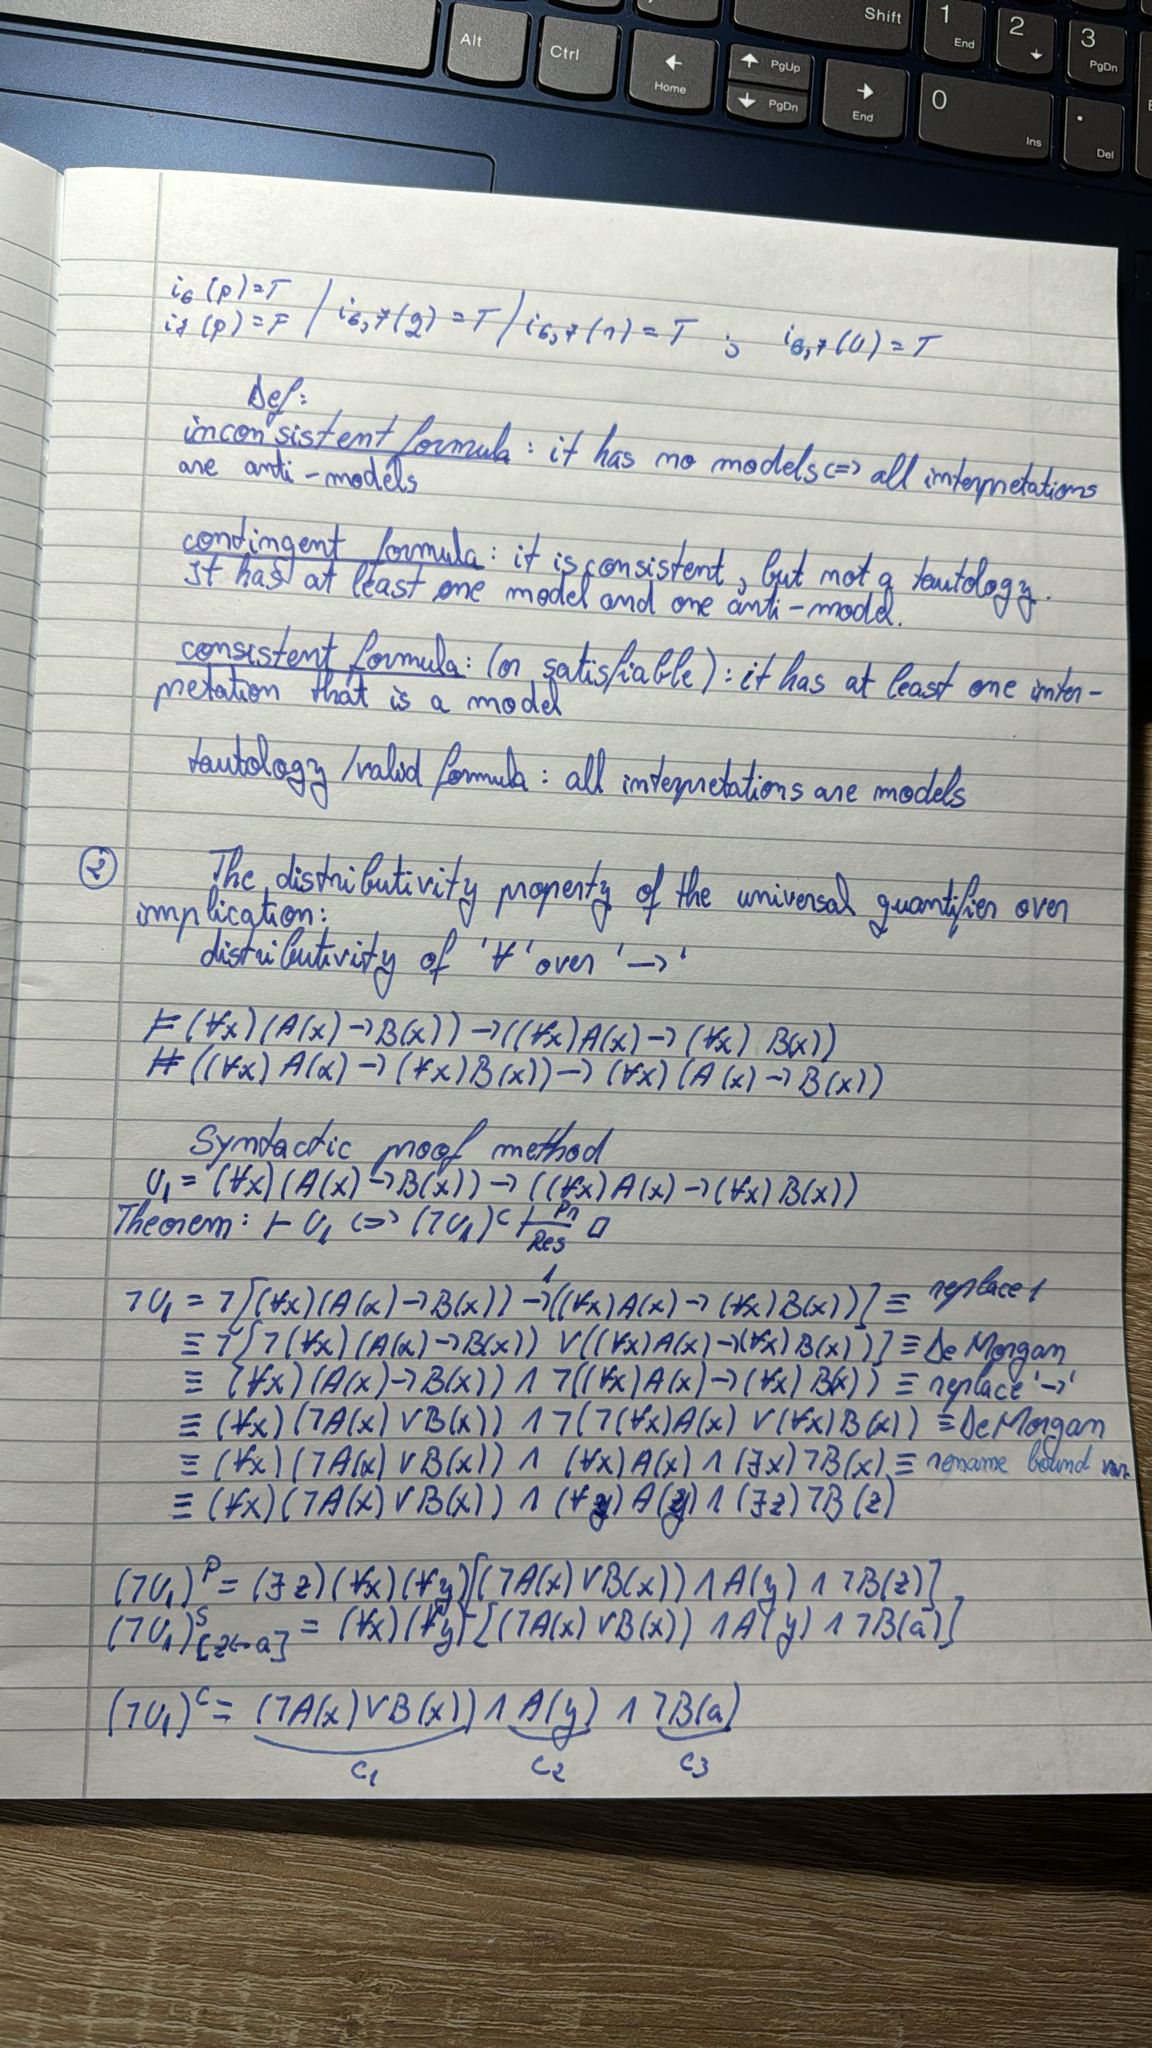 Alt
Ctrl
Home
PgUp
PgDn
End
Shift
1 End
2
3 PgDn
0 Ins
. Del
i₆(p)=T
i₇(p)=F / i₆,₇(q)=T / i₆,₇(r)=T ; i₆,₇(U)=T
Def:
inconsistent formula: it has no models <=> all interpretations
are anti-models
contingent formula: it is consistent, but not a tautology.
It has at least one model and one anti-model.
consistent formula: (or satisfiable): it has at least one inter-
pretation that is a model
tautology/valid formula: all interpretations are models
2 The distributivity property of the universal quantifier over
implication:
distributivity of '∀' over '→'
⊨ (∀x)(A(x)→B(x))→((∀x)A(x)→(∀x) B(x))
⊭ ((∀x)A(x)→(∀x)B(x))→(∀x)(A(x)→B(x))
Syntactic proof method
U₁ = (∀x)(A(x)→B(x))→((∀x)A(x)→(∀x)B(x))
Theorem: ⊢ U₁ <=> (¬U₁)ᶜ ⊢ Pr Res □
¬U₁ = ¬[(∀x)(A(x)→B(x)) →¹ ((∀x)A(x)→(∀x)B(x))] ≡ replace 1
≡ ¬[¬(∀x)(A(x)→B(x)) ∨ ((∀x)A(x)→(∀x)B(x))] ≡ De Morgan
≡ (∀x)(A(x)→B(x)) ∧ ¬((∀x)A(x)→(∀x)B(x)) ≡ replace '→'
≡ (∀x)(¬A(x)∨B(x)) ∧ ¬(¬(∀x)A(x) ∨ (∀x)B(x)) ≡ De Morgan
≡ (∀x)(¬A(x)∨B(x)) ∧ (∀x)A(x) ∧ (∃x)¬B(x) ≡ rename bound var.
≡ (∀x)(¬A(x)∨B(x)) ∧ (∀y)A(y) ∧ (∃z)¬B(z)
(¬U₁)ᴾ = (∃z)(∀x)(∀y)[(¬A(x)∨B(x)) ∧ A(y) ∧ ¬B(z)]
(¬U₁)ˢ[z←a] = (∀x)(∀y)[(¬A(x)∨B(x)) ∧ A(y) ∧ ¬B(a)]
(¬U₁)ᶜ = (¬A(x)∨B(x)) ∧ A(y) ∧ ¬B(a)
C₁ C₂ C₃